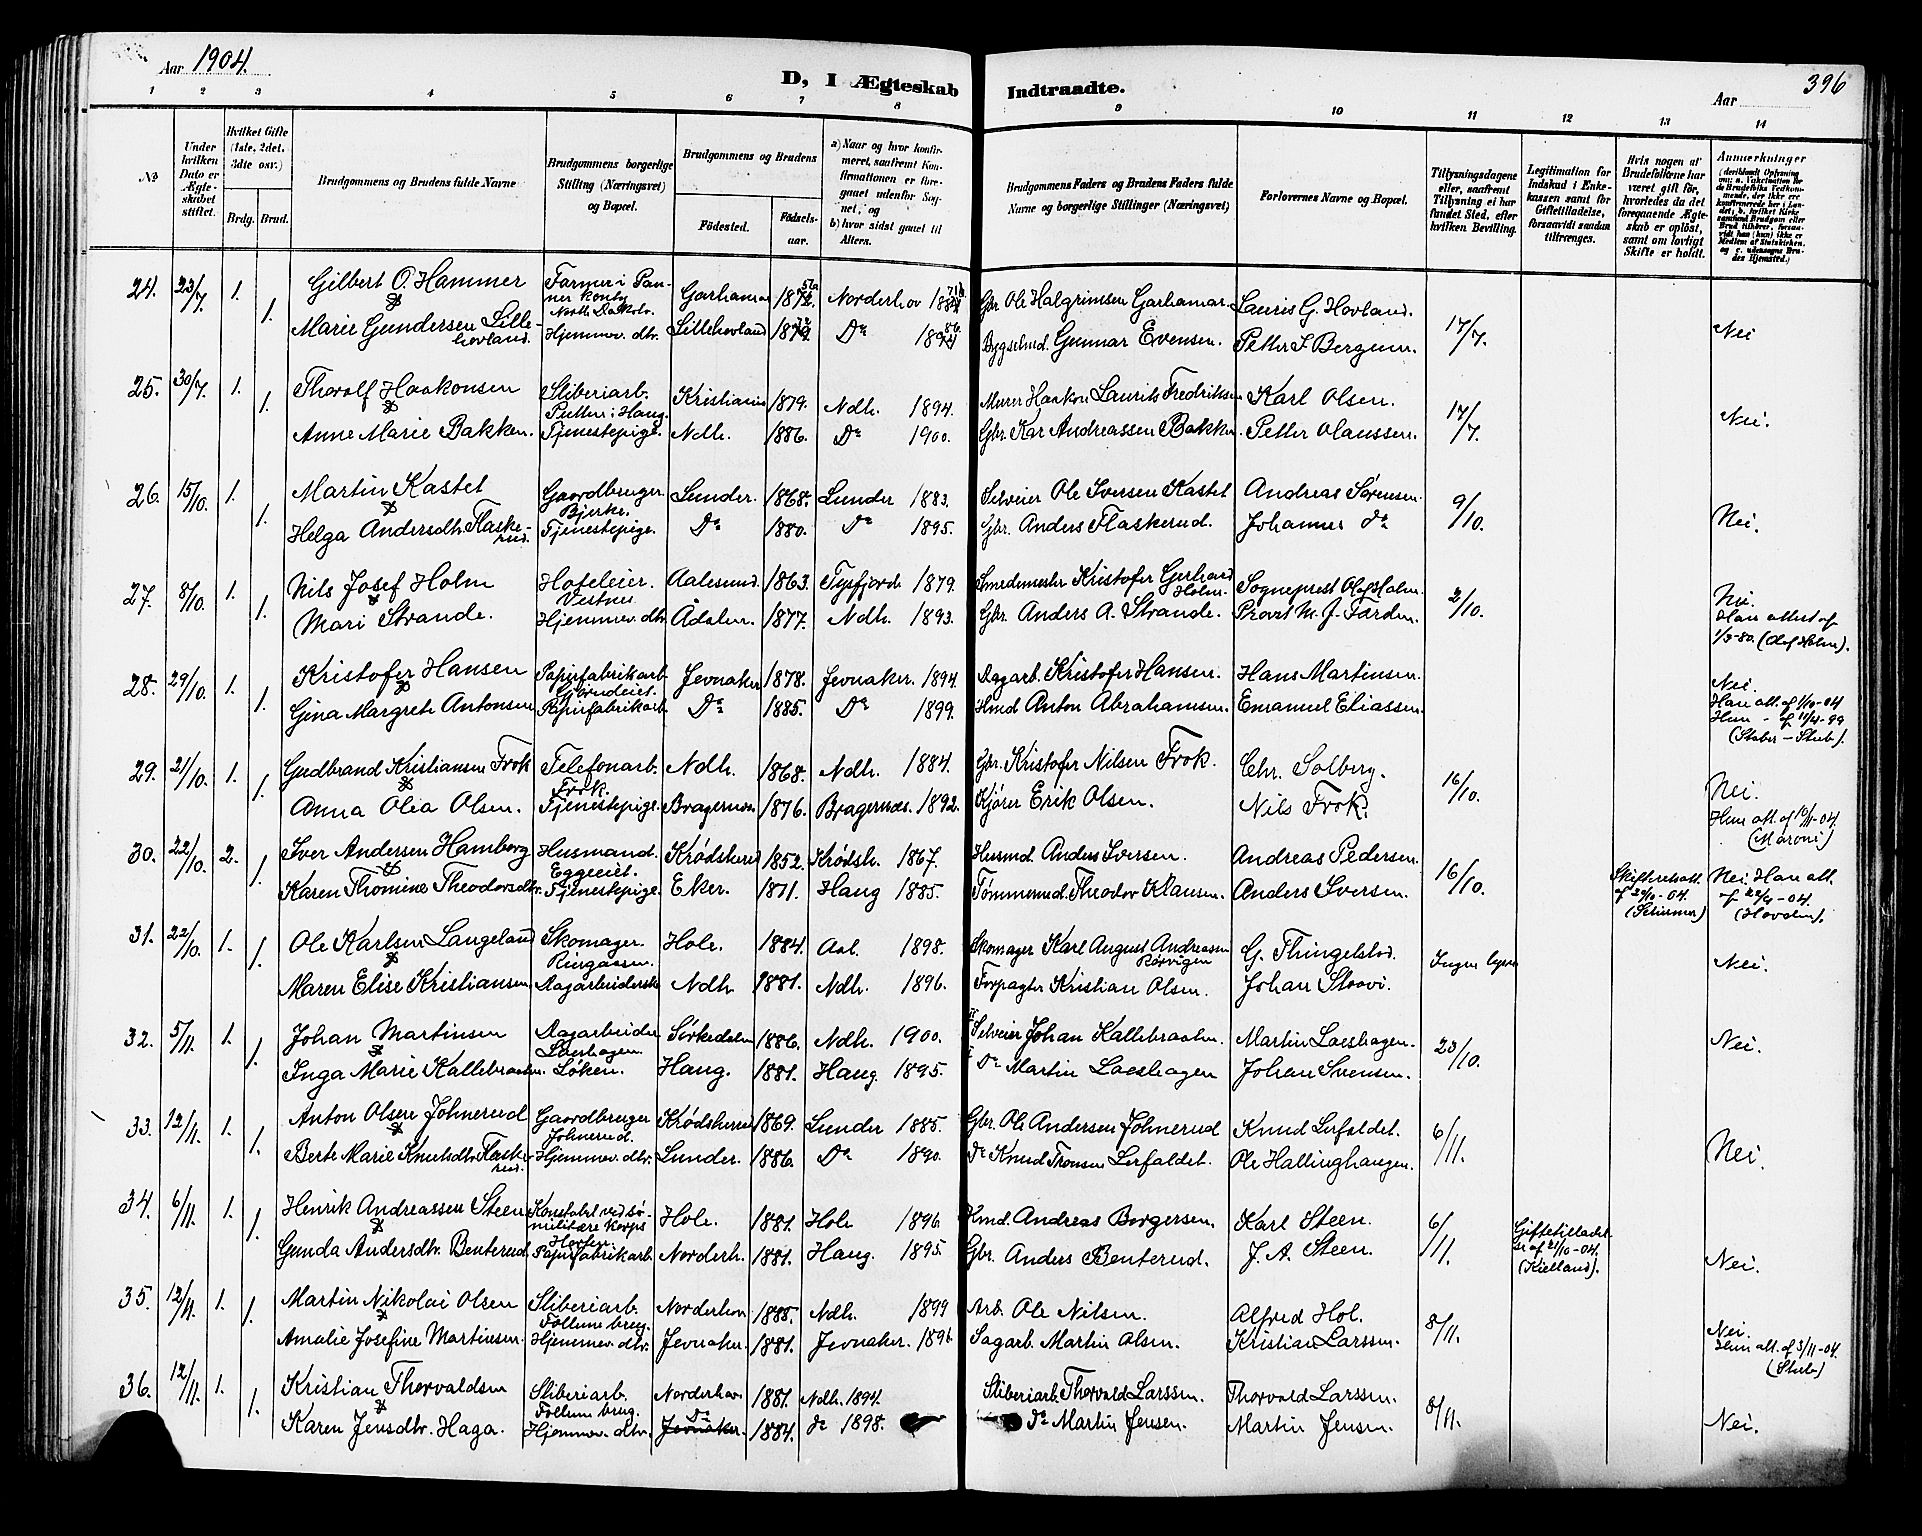 Aar 1904.
D, I Ægteskab Indtraadte.
Aar 396
1 2 3 4 5 6 7 8 9 10 11 12 13 14
№
Under hvilken Dato er Ægteskabet stiftet.
Hvilket Gifte (1ste, 2det, 3die osv.)
Brdg. Brud.
Brudgommens og Brudens fulde Navne
Brudgommens borgerlige Stilling (Næringsvei) og Bopæl.
Brudgommens og Brudens
Fødested. Fødselsaar.
a) Naar og hvor konfirmeret, saafremt Konfirmationen er foregaaet udenfor Sognet, og
b) hvor sidst gaaet til Alters.
Brudgommens Faders og Brudens Faders fulde Navne og borgerlige Stillinger (Næringsvei)
Forlovernes Navne og Bopæl.
Tillysningsdagene eller, saafremt Tillysning ei har fundet Sted, efter hvilken Bevilling.
Legitimation for Indskud i Enkekassen samt for Giftetilladelse, forsaavidt saadan tiltrænges.
Hvis nogen af Brudefolkene har været gift før, hvorledes da det foregaaende Ægteskab er opløst, samt om lovligt Skifte er holdt.
Anmærkninger
24. 23/7. 1. Gilbert O. Hammer Farmer i Norderhov Gbr. Ole Halgrimsen Garhamar. Lauris G. Hovland. 17/7. Nei
1. Marie Gundersen Lillehovland. Hjemmev. dtr. Lillehovland Do Bygselmd. Gunnar Evensen. Petter J. Bergum.
25. 30/7. 1. Thorolf Haakonsen Sliberiarb. Kristiania 1879. Ndh. 1894. Murer Haakon Laurits Fredriksen Karl Olsen. 17/7. Nei.
1. Anne Marie Bakken. Tjenestepige. Ndh. 1886. Do 1900. Gbr. Kar Andreassen Bakken. Petter Olaussen.
26. 15/10. 1. Martin Kastet Gaardbruger Bjerke. Lunder. 1868. Lunder 1883. Selveier Ole Iversen Kastet Andreas Sørensen. 9/10. Nei.
1. Helga Andersdtr. Flaskerud. Tjenestepige. Do 1880. Do 1895. Gbr. Anders Flaskerud. Johannes do
27. 8/10. 1. Nils Josef Holm Hoteleier. Vestnes Aalesund. 1863. Tysfjord 1879. Smedemester Kristofer Gerhard Holm. Sogneprest Olaf Holm. 2/10. Nei.
1. Mari Strande. Hjemmev. dtr. Ådalen. 1877. Ndh. 1893. Gbr. Anders A. Strande. Provst M. J. Færden. Han attest af 1/3-80. (Olaf Holm).
28. 29/10. 1. Kristofer Hansen Papirfabrikarb. Jevnaker 1878. Jevnaker. 1894. Dagarb. Kristofer Hansen. Hans Martinsen. Nei.
1. Gina Margrete Antonsen Papirfabrikarb. Do 1885. Do 1899. Hmd Anton Abrahamsen. Emanuel Eliassen. Han att. af 1/10-04 Hun - af 11/4-99 (Staber - Stub).
29. 21/10. 1. Gudbrand Kristiansen Frok Telefonarb. Frok. Ndh. 1868. Ndh. 1884. Gbr. Kristofer Nilsen Frok. Chr. Solberg. 16/10. Nei.
1. Anna Olia Olsen. Tjenestepige. Bragernes 1876. Bragernæs. 1892. Kjører Erik Olsen. Nils Frok. Hun att. af (Maroni)
30. 22/10. 2. Iver Andersen Hamborg Husmand. Eggeeiet. Krødsherred 1852. Krødsh. 1867. Husmd. Anders Iversen. Andreas Pedersen. 16/10. Skifteretsatt. (Schirmer) Nei. Han att.
1. Karen Thomine Theodorsdtr. Tjenestepige. Eker. 1871. Haug 1885. Tømmermd. Theodor Klausen. Anders Iversen. (Hovden).
31. 22/10. 1. Ole Karlsen Langeland Skomager. Ringaasen. Hole. 1884. Aal. 1898. Skomager Karl August Andreassen Rørvigen G. Thingelstad. Ingen lysn Nei.
1. Maren Elise Kristiansen Dagarbeiderske Ndh. 1881. Ndh. 1896. Forpagter Kristian Olsen. Johan Staavi.
32. 5/11. 1. Johan Martinsen Dagarbeider Laeshagen. Sørkedalen 1886. Ndh. 1900. Selveier Johan Kallebraaten. Martin Laeshagen. 23/10. Nei.
1. Inga Marie Kallebraaten. Løken. Haug. 1881. Haug. 1895. Do Martin Laeshagen Johan Svensen.
33. 12/11. 1. Anton Olsen Johnerud Gaardbruger Johnerud. Krødsherred 1869. Lunder 1885. Gbr. Ole Andersen Johnerud Knud Lerfaldet. 6/11. Nei.
1. Berte Marie Knutsdtr. Flaskerud. Hjemmev. dtr. Lunder. 1886. Do 1890. Do Knud Tronsen Lerfaldet. Ole Hallinghaugen.
34. 6/11. 1. Henrik Andreassen Steen Konstabel ved sømilitære korps Horten. Hole. 1881. Hole 1896. Hmd. Andreas Borgersen. Karl Steen. 6/11. Giftetilladelse af 21/10-04. (Kielland). Nei.
1. Gunda Andersdtr. Benterud. Papirfabrikarb. Norderh. 1881. Haug. 1895. Gbr. Anders Benterud. J. A. Steen.
35. 12/11. 1. Martin Nikolai Olsen Sliberiarb. Follum brug. Norderhov 1885. Ndh. 1899 Arb. Ole Nilsen. Alfred Hol. 8/11. Nei.
1. Amalie Josefine Martinsen. Hjemmev. dtr. Jevnaker. 1881. Jevnaker. 1896 Sagarb. Martin Olsen. Kristian Larssen. Hun att. af 3/11-04. (Stub)
36. 12/11. 1. Kristian Thorvaldsen Sliberiarb. Follum brug. Norderhov 1881. Ndh. 1894. Sliberiarb. Thorvald Larssen. Thorvald Larssen. 8/11. Nei.
1. Karen Jensdtr. Haga. Hjemmev. dtr. Do Jevnaker. 1884. Do 1898. Do Martin Jensen. Martin Jensen.